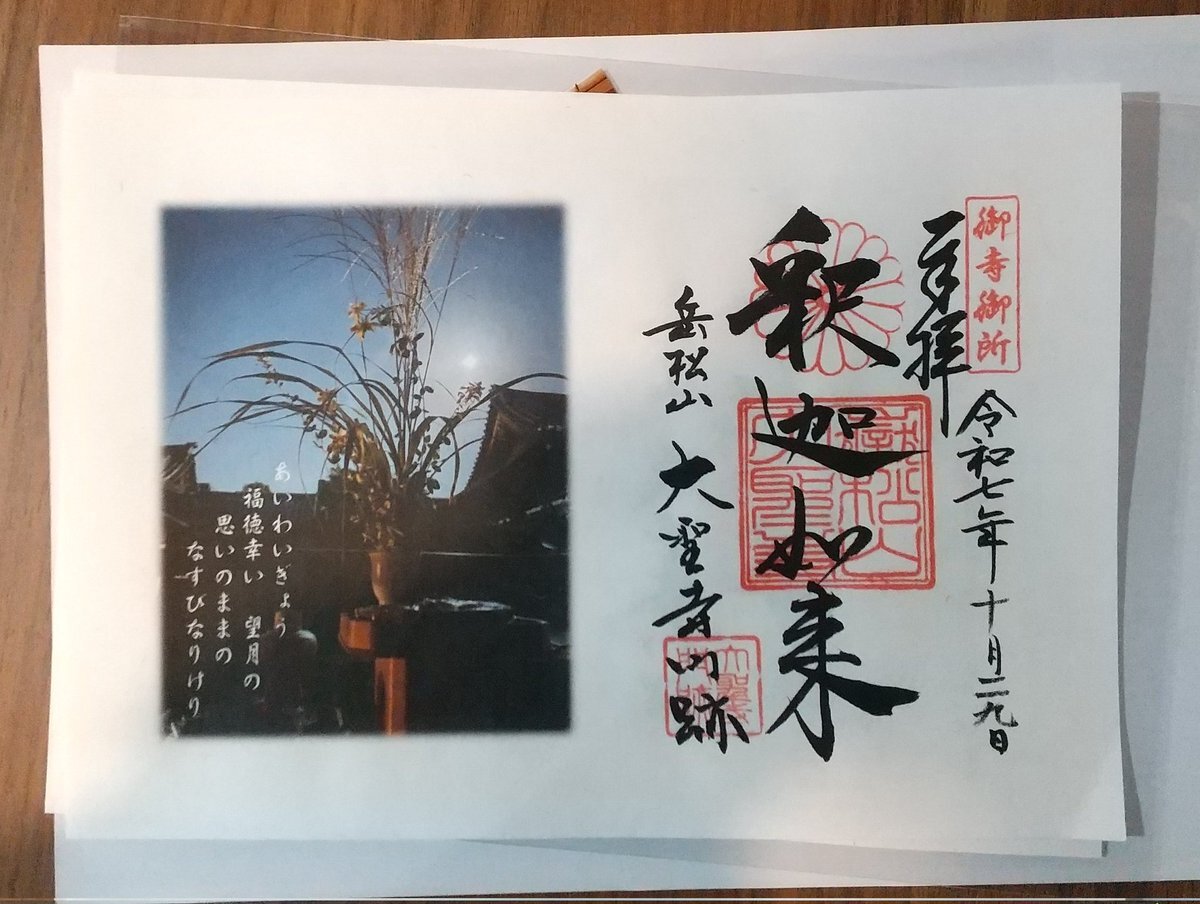 御寺御所
奉拝
令和七年十月二九日
釈迦如来
岳松山 大聖寺門跡
あいわいぎょう
福徳幸い 望月の
思いのままの
なすびなりけり